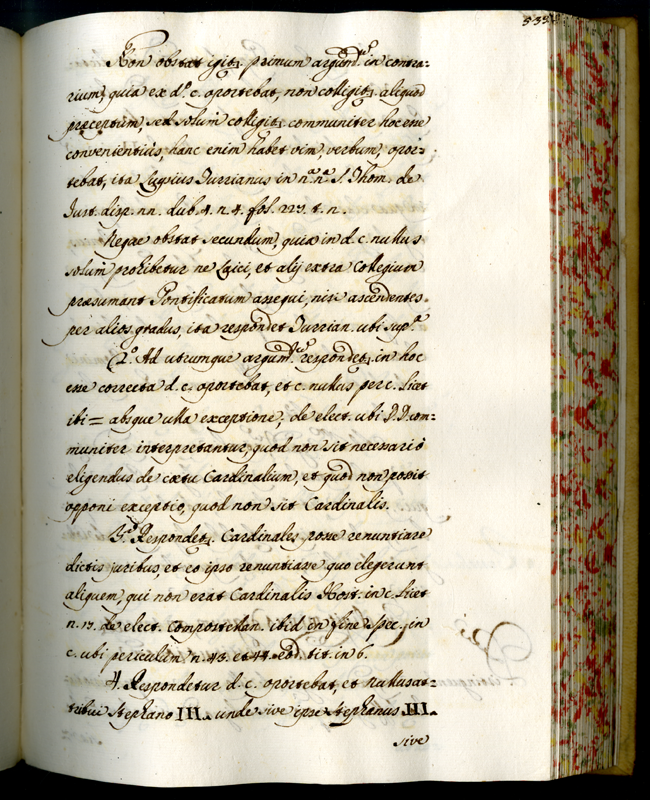 Non obstat igitr. primum argumtũ. in contra:
rium, quia ex d.º c. oportebat, non colligitr. aliquod
præceptum, sed solum colligitr. communiter hoc esse
convenientius, hanc enim habet vim, verbum, opor:
tebat, ita Luysius Turrianus in n.ª n.ª S. Thom. de
Iust. disp. nn. dub. 4. n. 4. fol. 223. t. n.
Neque obstat secundum, quia in d. c. nullus
solum prohibetur ne Laici, et alij extra Collegium
præsumant Pontificatum assequi, nisi ascendentes
per alios gradus, ita respondet Turrian. ubi sup.ª
2.º Ad utrumque argum.tum respondetr. in hoc
esse correcta d. c. oportebat, et c. nullus per c. licet
ibi = absque ulla exceptione, de elect. ubi D.D. com:
muniter interpretantur, quod non sit necessario
eligendus de cœtu Cardinalium, et quod non possit
opponi exceptio, quod non sit Cardinalis.
3.º Respondetr. Cardinales posse renuntiare
dictis juribus, et eo ipso renuntiasse quo elegerunt
aliquem, qui non erat Cardinalis Host. in c. licet
n. 13. de elect. Compostelan. ibid in fine Spec. in
c. ubi periculum n. 43. et 44. eod. tit. in 6.
4. Respondetur d. c. oportebat, et nullus at:
tribui Stephano III. unde sive ipse Stephanus III.
sive